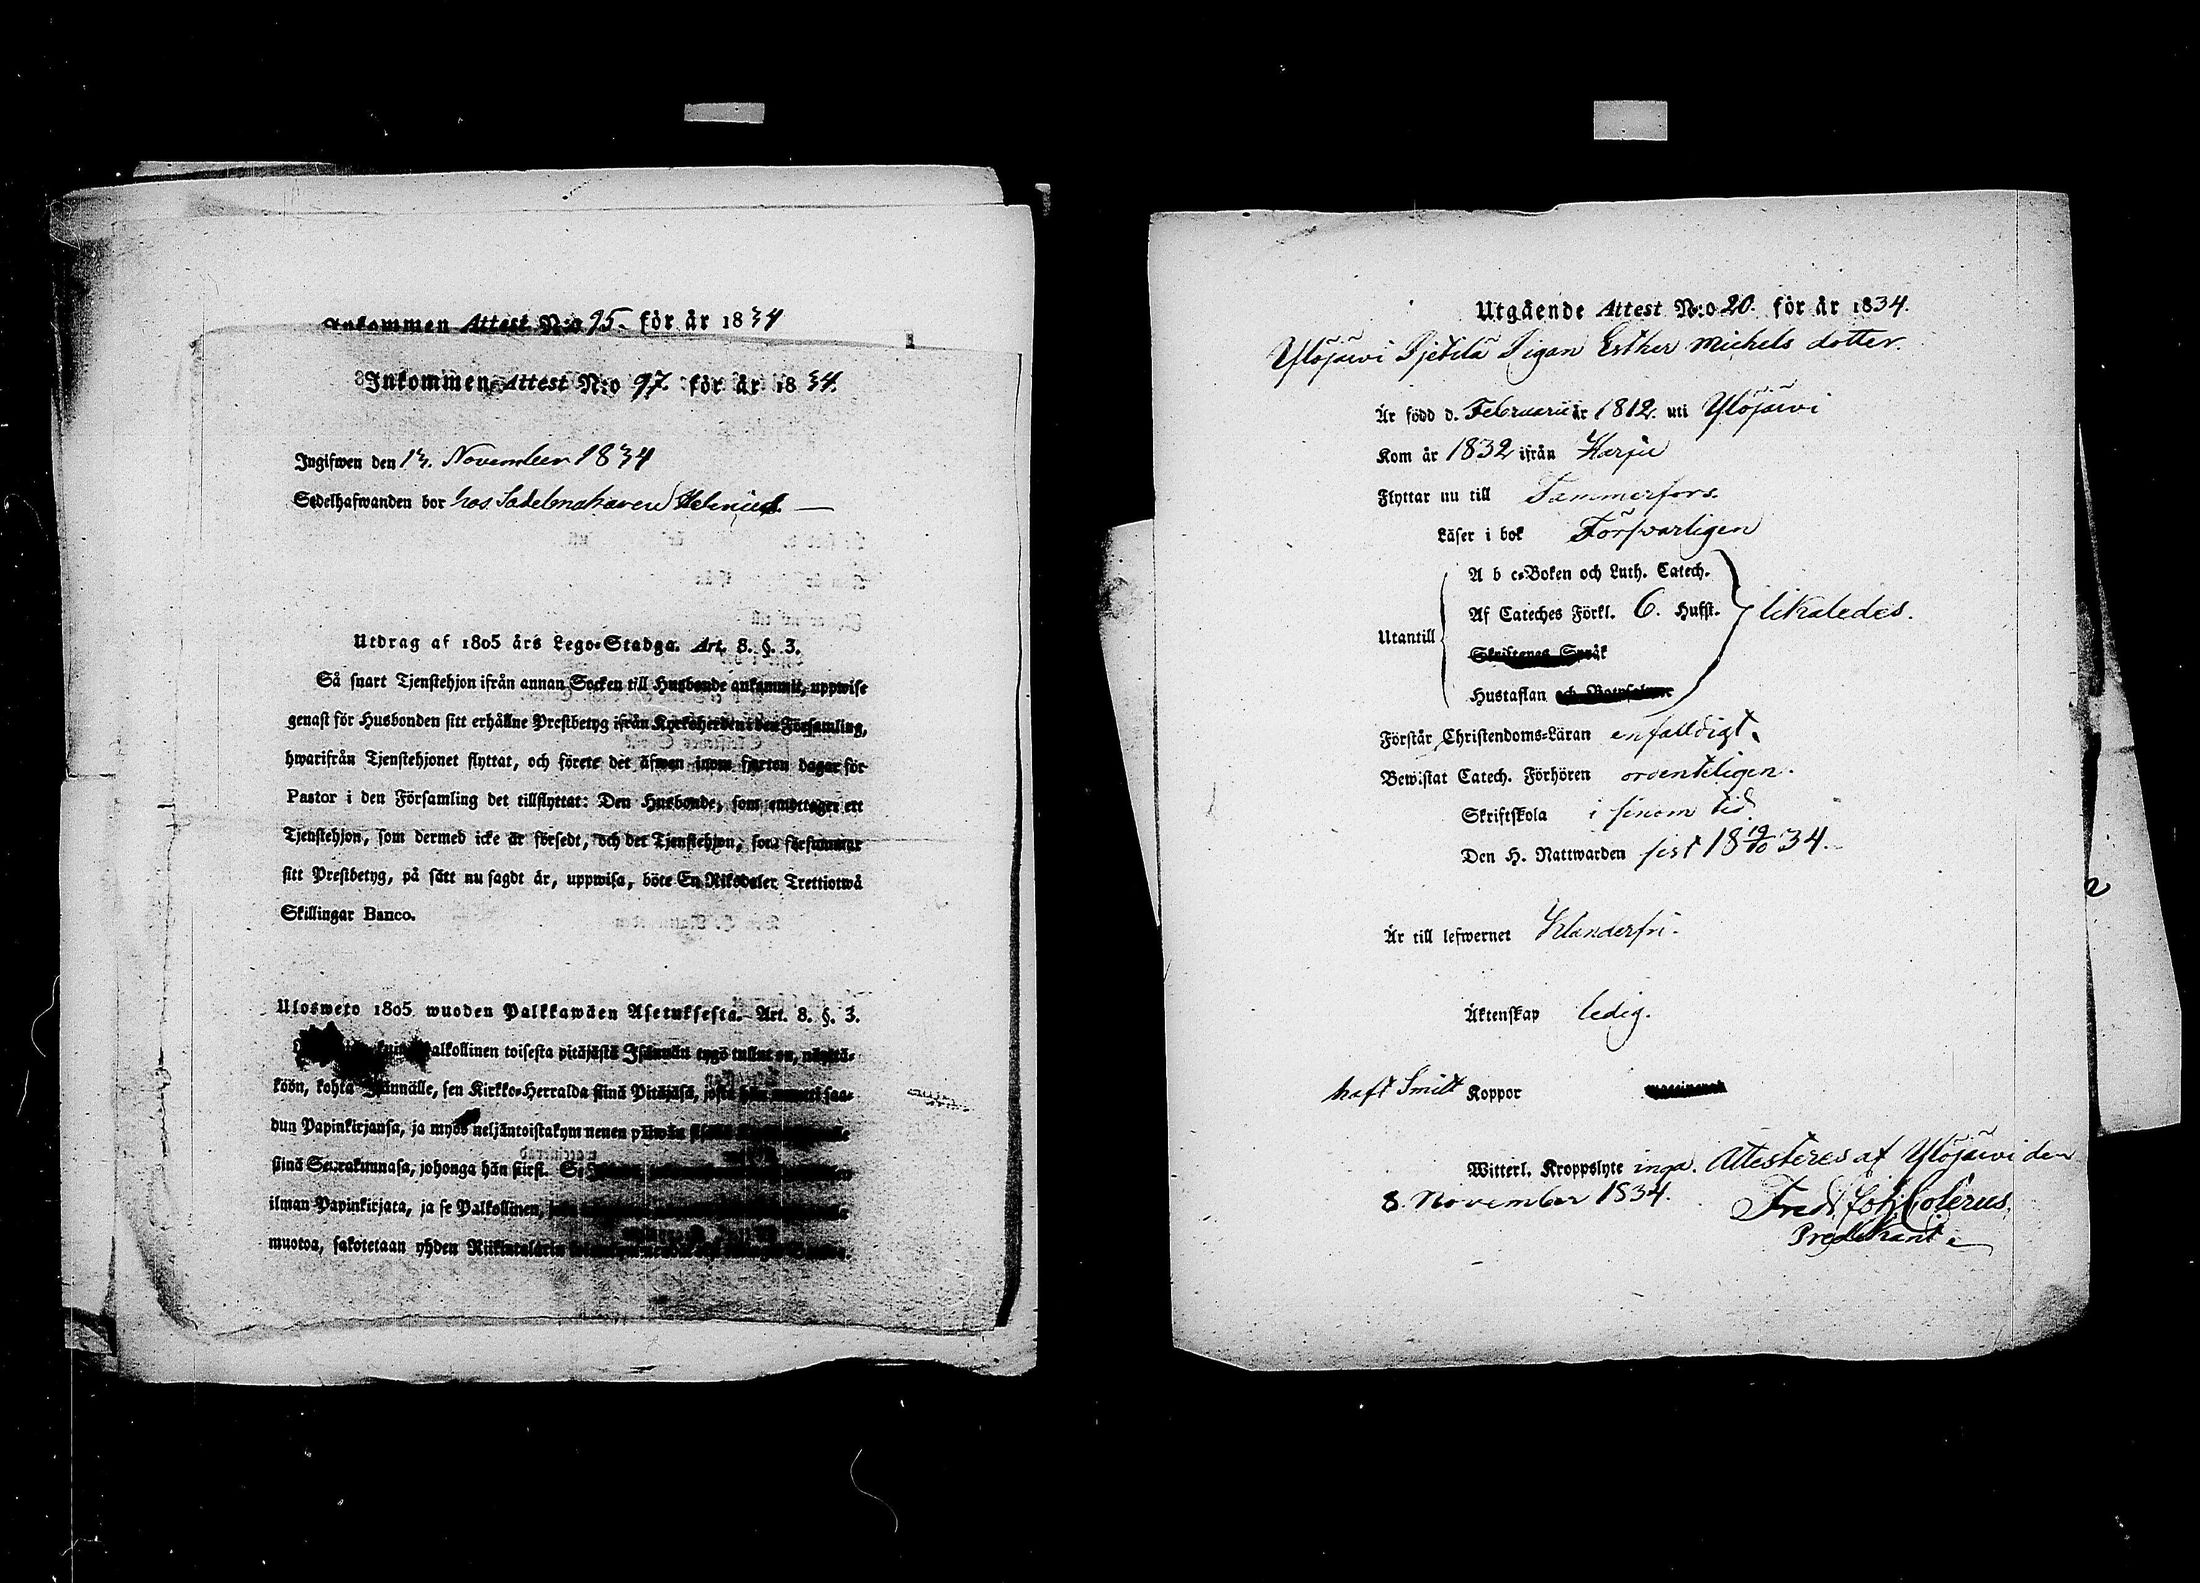 Inkommen Attest N:o 95. för år 1834
Inkommen Attest N:o 97. för år 1834.
Ingifwen den 13. November 1834
Sedelhafwanden bor hos Sadelmakaren
Utdrag af 1805 års Lego-Stadga. Art. 8. §. 3.
Så snart Tjenstehjon ifrån annan Socken till Husbonde ankommit, uppwise
genast för Husbonden sitt erhållne Prestbetyg ifrån Kyrkoherden i den Församling,
hwarifrån Tjenstehjonet flyttat, och förete det äfwen inom fjorton dagar för
Pastor i den Församling det tillflyttat: Den Husbonde, som emottager ett
Tjenstehjon, som dermed icke är försedt, och det Tjenstehjon, som försummar
sitt Prestbetyg, på sätt nu sagdt är, uppwisa, böte En Riksdaler Trettiotwå
Skillingar Banco.
Ulosweto 1805 wuoden Palkkawäen Asetuksesta. Art. 8. §. 3.
kuin Palkollinen toisesta pitäjästä Isännän tygö tullut on, näyttä-
köön, kohta Isännälle, sen Kirkko-Herralda siinä Pitäjäsä, josta hän muutti saa-
dun Papinkirjansa, ja myös neljäntoistakymmenen päiwän
siinä Seurakunnasa, johonga hän siirsi. Se
ilman Papinkirjata, ja se Palkollinen,
muotoa, sakotetaan yhden Riikintalarin
Utgående Attest N:o 20. för år 1834.
Ylöjärwi Pjettlä Pigan Esther Michels dotter.
Är född d. Februarii år 1812. uti Ylöjärwi
Kom år 1832 ifrån Harju
Flyttar nu till Tammerfors.
Läser i bok Försvarligen
A b c-Boken och Luth. Catech.
Af Cateches Förkl. 6. Hufst. likaledes.
Utantill
Skriftenes Språk
Hustaflan och Botpsalmer
Förstår Christendoms-Läran enfalldigt.
Bewistat Catech. Förhören ordenteligen.
Skriftskola i sinom tid
Den H. Nattwarden sist 18 19/10 34.
Är till lefwernet Klanderfri.
Äktenskap ledig.
haft Smitt Koppor vaccinerad
Witterl. Kroppslyte inga. Attesteres af Ylöjärwi den
8. November 1834. Fredr Joh Colerus.
Predikant